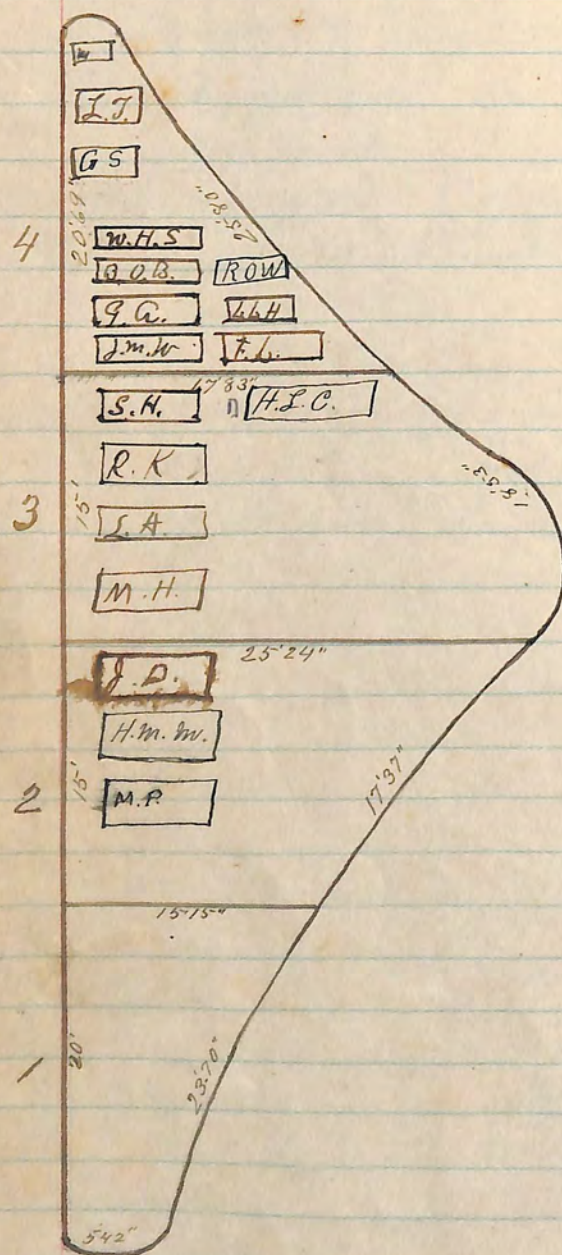 W
L.J.
G S
20'69"
25'80"
4
W.H.S
B.O.B. ROW
G.A. LLH
J.M.W. F.L.
17'83"
S.H. H.L.C.
R.K
18'53"
3
15'
L.A.
M.H.
25'24"
J.D.
H.M.M.
17'37"
2
15'
M.P.
15'15"
1
20'
23'70"
5'42"